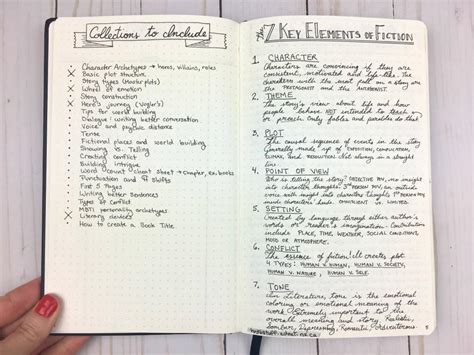 Collections to Include
Character Archetypes → heros, villains, roles
Basic plot structure
Story types (Booker plots)
Wheel of emotion
Story construction
Hero's journey (Vogler's)
Tips for world building
Dialogue: writing better conversation
Voice and psychic distance
Tense
Fictional places and world building
Showing vs. Telling
Creating conflict
Building intrigue
Word count cheat sheet → Chapter, ex. books
Punctuation and shifts
First 5 Pages
Writing better sentences
Types of Conflict
MBTI personality archetypes
Literary devices
How to create a Book Title
The 7 Key Elements of Fiction
1. CHARACTER
Characters are convincing if they are
consistent, motivated and life-like. The
characters with the most pull on a story are
the PROTAGONIST and the ANTAGONIST.
2. THEME
The story's view about life and how
people behave. NOT intended to teach
or preach. Only fables and parables do that
3. PLOT
The causal sequence of events in the story
Generally made up of EXPOSITION, COMPLICATION,
CLIMAX, and RESOLUTION. Not always in a straight
line.
4. POINT OF VIEW
Who is telling the story? OBJECTIVE POV, no insight
into character thoughts. 3RD PERSON POV, an outside
voice with insight into character thoughts. 1ST PERSON POV
made character's. OMNISCIENT is
5. SETTING
Created by language through either author's
words or reader's imagination. Contributions
include PLACE, TIME, WEATHER, SOCIAL CONDITIONS,
MOOD OR ATMOSPHERE.
6. CONFLICT
The essence of fiction! It creates plot
4 TYPES: HUMAN V. HUMAN, HUMAN V. SOCIETY,
HUMAN V. NATURE, HUMAN V. SELF.
7. TONE
In Literature, tone is the emotional
coloring or emotional meaning of the
work. Extremely important to the
overall meaning and story. Realistic,
Sombre, Depressing, Romantic,